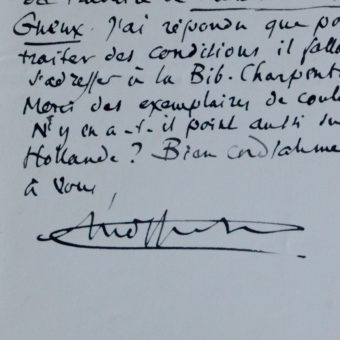 Gueux. J'ai répondu que po
traiter des conditions il fall
s'adresser à la Bib. Charpent
Merci des exemplaires de coule
N'y en a-t-il point aussi su
Hollande? Bien cordialeme
à vous,